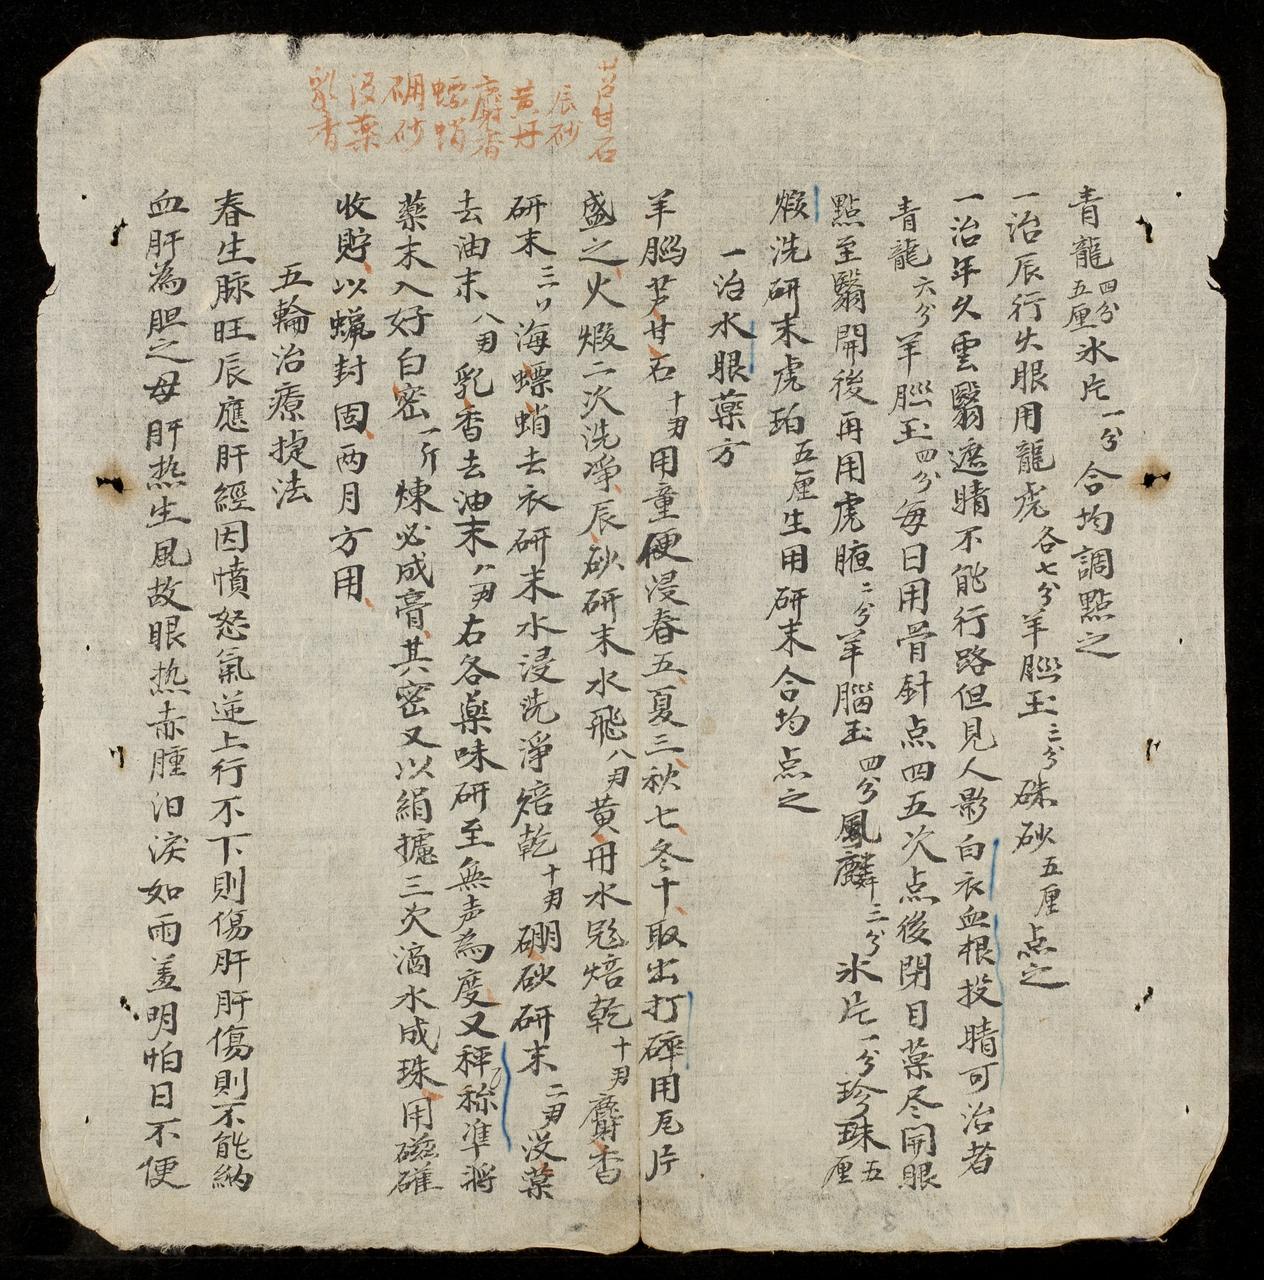 芦甘石
辰砂
黄丹
麝香
螵蛸
硼砂
没藥
乳香
青龍四分五厘氷片一分合均調點之
一治辰行失眼用龍虎各七分羊腦玉三分硃砂五厘点之
一治年久雲翳遮睛不能行路但見人影白衣血根投睛可治者
青龍六分羊腦玉四分每日用骨針点四五次点後閉目藥尽開眼
點至翳開後再用虎脏二分羊腦玉四分鳳麟三分氷片一分珍珠五厘
煅洗研末虎珀五厘生用研末合均点之
一治水眼藥方
羊腦芦甘石十刄用童便浸春五夏三秋七冬十取出打碎用瓦片
盛之火煅二次洗凈辰砂研末水飛八刄黄丹水飛焙乾十刄麝香
研末三刂海螵蛸去衣研末水浸洗淨焙乾十刄硼砂研末二刄没藥
去油末八刄乳香去油末八刄右各藥味研至無声為度又秤称准将
藥末入好白密一斤煉必成膏其密又以絹攄三次滴水成珠用磁礶
收貯以蝋封固两月方用
五輪治療捷法
春生脉旺辰應肝經因憤怒氣逆上行不下則傷肝肝傷則不能納
血肝為胆之母肝热生風故眼热赤腫汨淚如雨羞明怕日不便